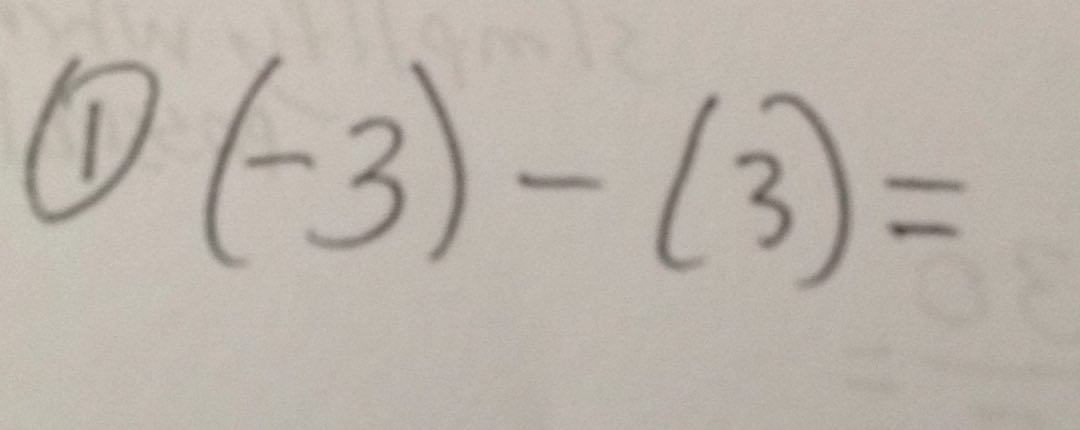 ① (-3) - (3) =